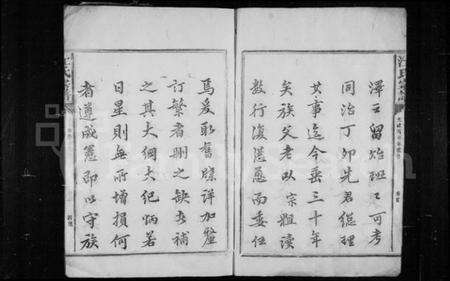 澤之留貽班〻可考
同治丁卯先君經理
其事迄今垂三十年
矣族父老以宗粗讀
數行復慫恿而委任
焉爰取舊牒詳加釐
訂繁者刪之缺者補
之其大綱大紀炳若
日星則無所增損何
者遵成憲即以守族